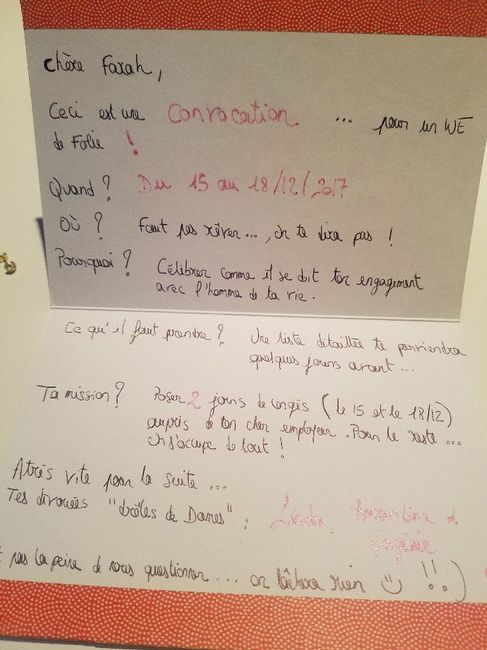 Chère Farah,
Ceci est une Convocation ... pour un WE
de Folie !
Quand ? Du 15 au 18/12/2017
Où ? Faut pas rêver..., on te dira pas !
Pourquoi ? Célébrer comme il se doit ton engagement
avec l'homme de ta vie.
Ce qu'il faut prendre ? Une liste détaillée te parviendra
quelques jours avant...
Ta mission ? Poser 2 jours de congés (le 15 et le 18/12)
auprès de ton cher employeur. Pour le reste...
on s'occupe de tout !
A très vite pour la suite...
Tes dévouées "drôles de Dames" : Linda,
pas la peine de nous questionner... on lâchera rien !!)